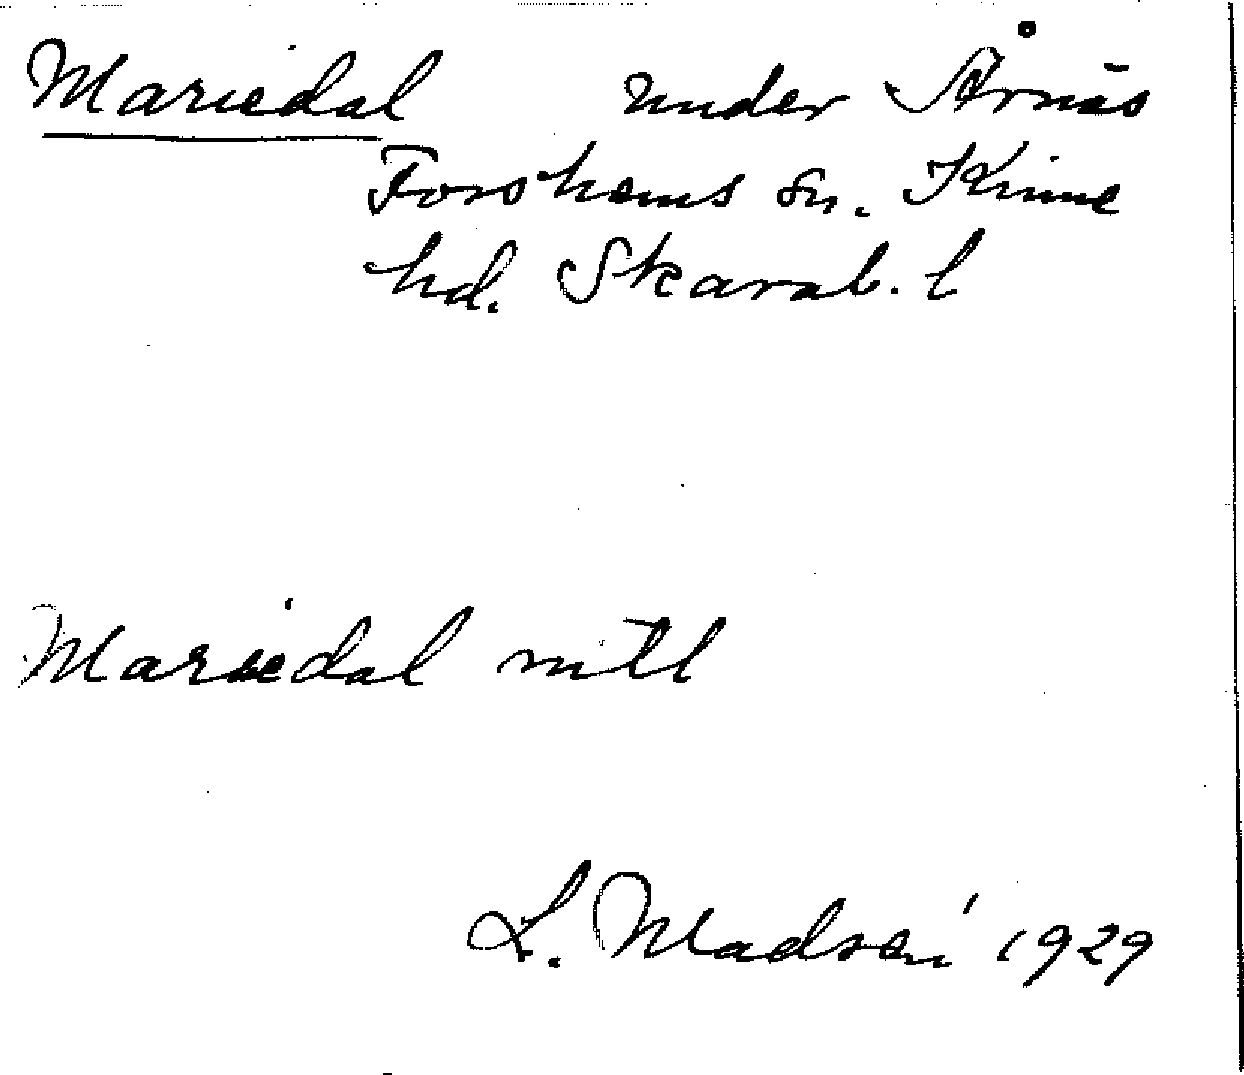 Mariedal under Årnäs
Forshems sn. Kinne
hd. Skarab. l
Mariedal mtl
L. Madsén 1929